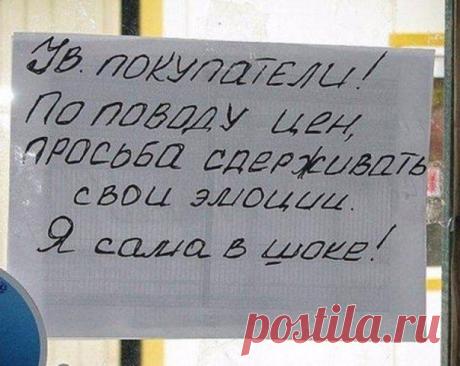 Ув. покупатели!
По поводу цен,
просьба сдерживать
свои эмоции.
Я сама в шоке!
postila.ru